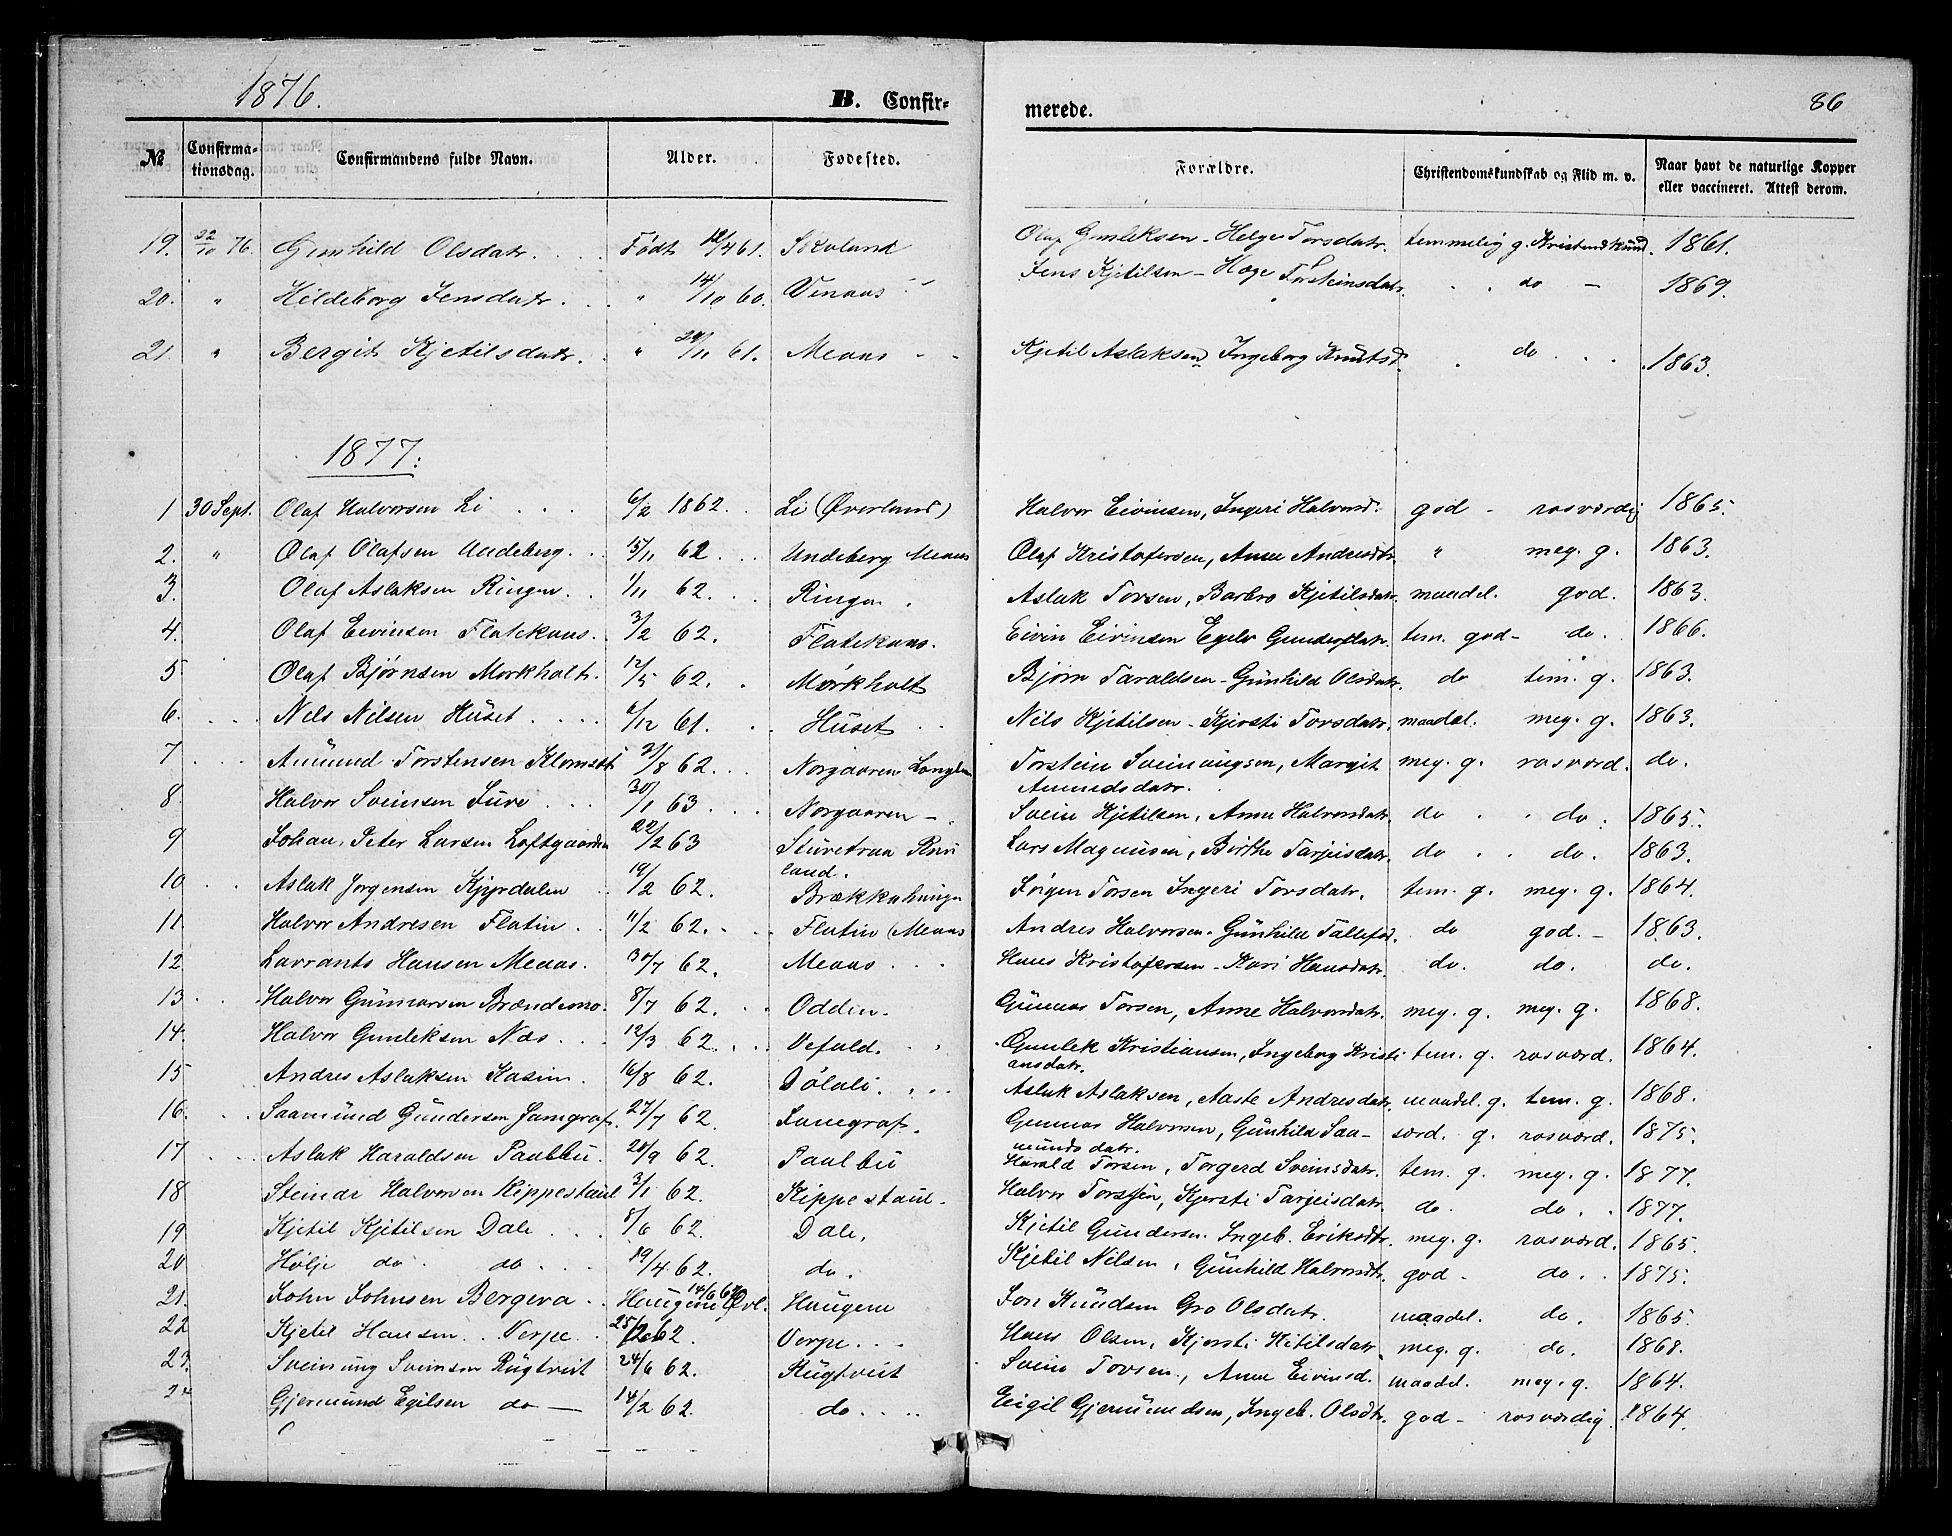 1876.
B. Confir-
merede.
86
№
Confirma-
tionsdag.
Confirmandens fulde Navn.
Alder.
Fødested.
Forældre.
Christendomskundskab og Flid m. v.
Naar havt de naturlige Kopper
eller vaccineret. Attest derom.
19. 22/10 76. Gunhild Olsdatr. Født 12/4 61. Skoland Olaf Gunleksen - Helge Torsdatr. temmelig g. Kristendkund. 1861.
20. " Hildeborg Jensdatr. " 14/10 60. Vinaas Jens Kjetilsen - Hæge Torsteinsdatr. do - 1869.
21. " Bergit Kjetilsdatr. " 29/11 61. Meaas - - Kjetil Aslaksen, Ingeborg Knutsd. do 1863.
1877:
1 30 Sept. Olaf Halvorsen Li 6/2 1862. Li (Øverland) Halvor Eivinsen, Ingeri Halvorsd. god - rosværdig 1865.
2. " Olaf Olafsen Undeberg. 15/11 62 Undeberg Meaas Olaf Kristofersen, Anne Andresdtr. " meg. g. 1863.
3. Olaf Aslaksen Ringen. 1/11 62. Ringen. Aslak Torsen, Barbro Kjetilsdatr. maadel. god. 1863.
4. Olaf Eivinsen Flatekaas. 3/2 62. Flatekaas. Eivin Eivinsen Egelev Gundersdatr. tem. god - do. 1866.
5 Olaf Bjørnsen Morkholt. 12/5 62. Mørkholt Bjørn Taraldsen - Gunhild Olsdatr. do tem. g. 1863.
6. Nils Nilsen Huset 6/12 61. Huset Nils Kjetilsen - Kjersti Torsdatr. maadel. meg. g. 1863.
7 Amund Torstensen Klomset 21/8 62. Norgaaren Torstein Sveinungsen, Margit meg. g. rosværd. do.
Amundsdatr.
8. Halvor Sveinsen Juve 30/1 63 Norgaaren - Svein Kjetilsen, Anne Halvorsdatr. do do. 1865.
9 Johan Peter Larsen Loftgaarden 22/2 63 Sturetraa Rau
land. Lars Magnusen, Birthe Tarjeisdatr. do do. 1863.
10 Aslak Jørgensen Kjyrdalen 19/2 62. Brækkahaugen Jørgen Torsen Ingeri Torsdatr. tem. g. meg. g. 1864.
11. Halvor Andresen Flatin 11/2 62. Flatin (Meaas Andres Halvorsen - Gunhild Tallefsd. do god. - 1863.
12 Lavrants Hansen Meaas. 30/7 62. Meaas Hans Kristofersen - Kari Hansdatr. do. do. do.
13 Halvor Gunnarsen Brændemo. 8/7 62. Odden. Gunnar Torsen, Anne Halvorsdatr. meg. g. meg. g. 1868.
14. Halvor Gunleksen Næs 12/3 62. Vefald. Gunlek Kristiansen, Ingeborg Kristi tem. g. rosværd. 1864.
ansdatr.
15 Andres Aslaksen Kasin. 16/8 62. Dølali Aslak Aslaksen, Aaste Andresdatr. maadel. g. tem. g. 1868.
16. Saamund Gundersen Jamgraf. 27/7 62. Jamgraf. Gunnar Halvorsen, Gunhild Saa- særd. g. rosværd. 1875.
munds datr.
17 Aslak Haraldsen Paulbu. 28/9 62. Paulbu Harald Torsen, Torgerd Sveinsdatr. tem. g. meg. g. 1877.
18 Steinar Halvorsen Kippestaul 3/1 62. Kippestaul - Halvor Torssen, Kjersti Tarjeisdatr. do. do. 1877.
19 Kjetil Kjetilsen Dale 8/6 62. Dale. Kjetil Gundersen. Ingeb. Eriksdtr. meg. g. rosværd. 1865.
20 Hølje do do 19/4 62. do. Kjetil Nilsen, Gunhild Halvorsdtr. god - do. 1875.
21. John Johnsen Bergeva Haugene Øvl. 14/6 62 Haugene Jon Knudsen Gro Olsdatr. maadel. do. 1865.
22 Kjetil Hansen Verpe 25/2 62. Verpe Hans Olsen, Kjersti Kitilsdatr. meg. g. do. 1868.
23. Sveinung Sveinsen Rugtveit 24/6 62. Rugtveit Svein Tovsen, Anne Eivinsd. maadel. meg. g. 1864.
24 Gjermund Egilsen do - 14/2 62. do Eigil Gjermundsen, Ingeb. Olsdtr. god - rosværdig. 1864.